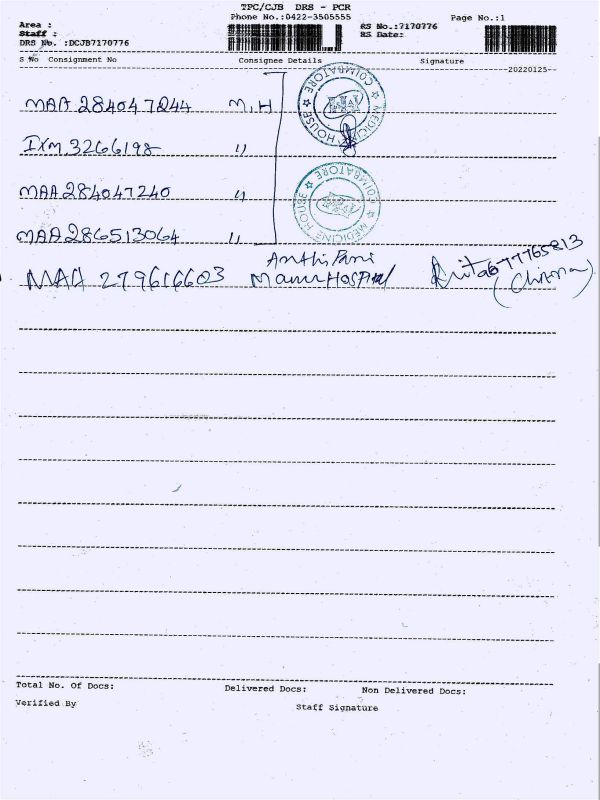 TPC/CJB DRS - PCR
Area : Phone No.:0422-3505555 RS No.:7170776 Page No.:1
Staff : RS Date:
DRS No. :DCJB7170776
S No Consignment No Consignee Details Signature
20220125
MAA 284047244 M.H
IXM 3266198 "
MAA 284047240 "
MAA 286513064 "
COIMBATORE ☆ MEDICINE HOUSE ☆
COIMBATORE ☆ MEDICINE HOUSE ☆
MAA 279616603 Hospital
Total No. Of Docs: Delivered Docs: Non Delivered Docs:
Verified By Staff Signature